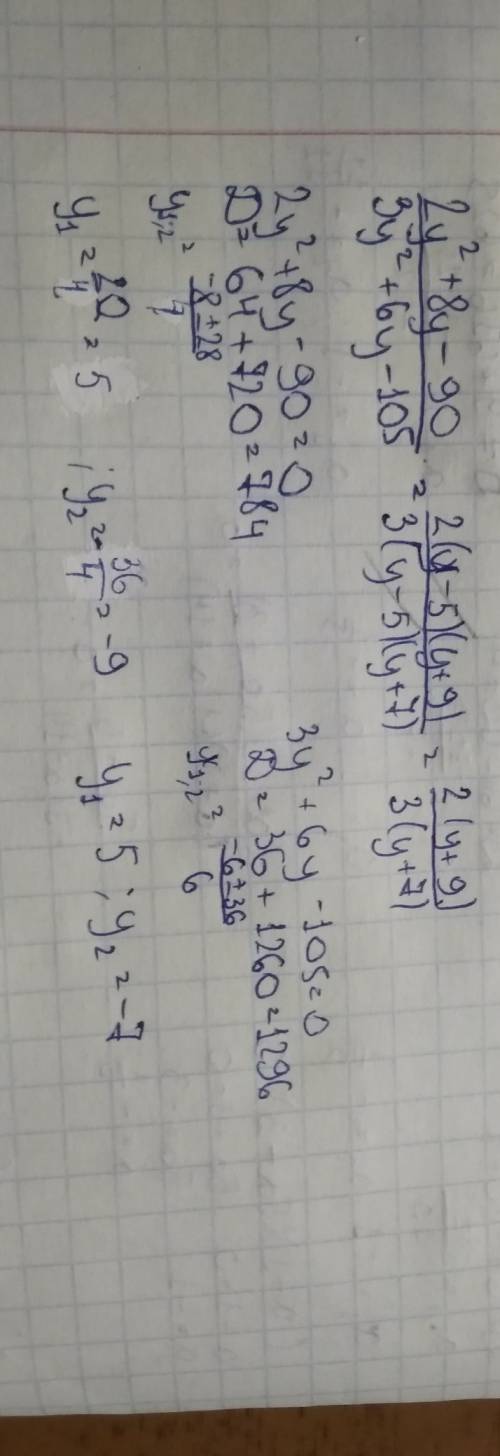 2y² + 8y - 90 / 3y² + 6y - 105 = 2(y - 5)(y + 9) / 3(y - 5)(y + 7) = 2(y + 9) / 3(y + 7)
2y² + 8y - 90 = 0
D = 64 + 720 = 784
y₁,₂ = -8 ± 28 / 4
y₁ = 20/4 = 5 ; y₂ = -36/4 = -9
3y² + 6y - 105 = 0
D = 36 + 1260 = 1296
y₁,₂ = -6 ± 36 / 6
y₁ = 5 ; y₂ = -7